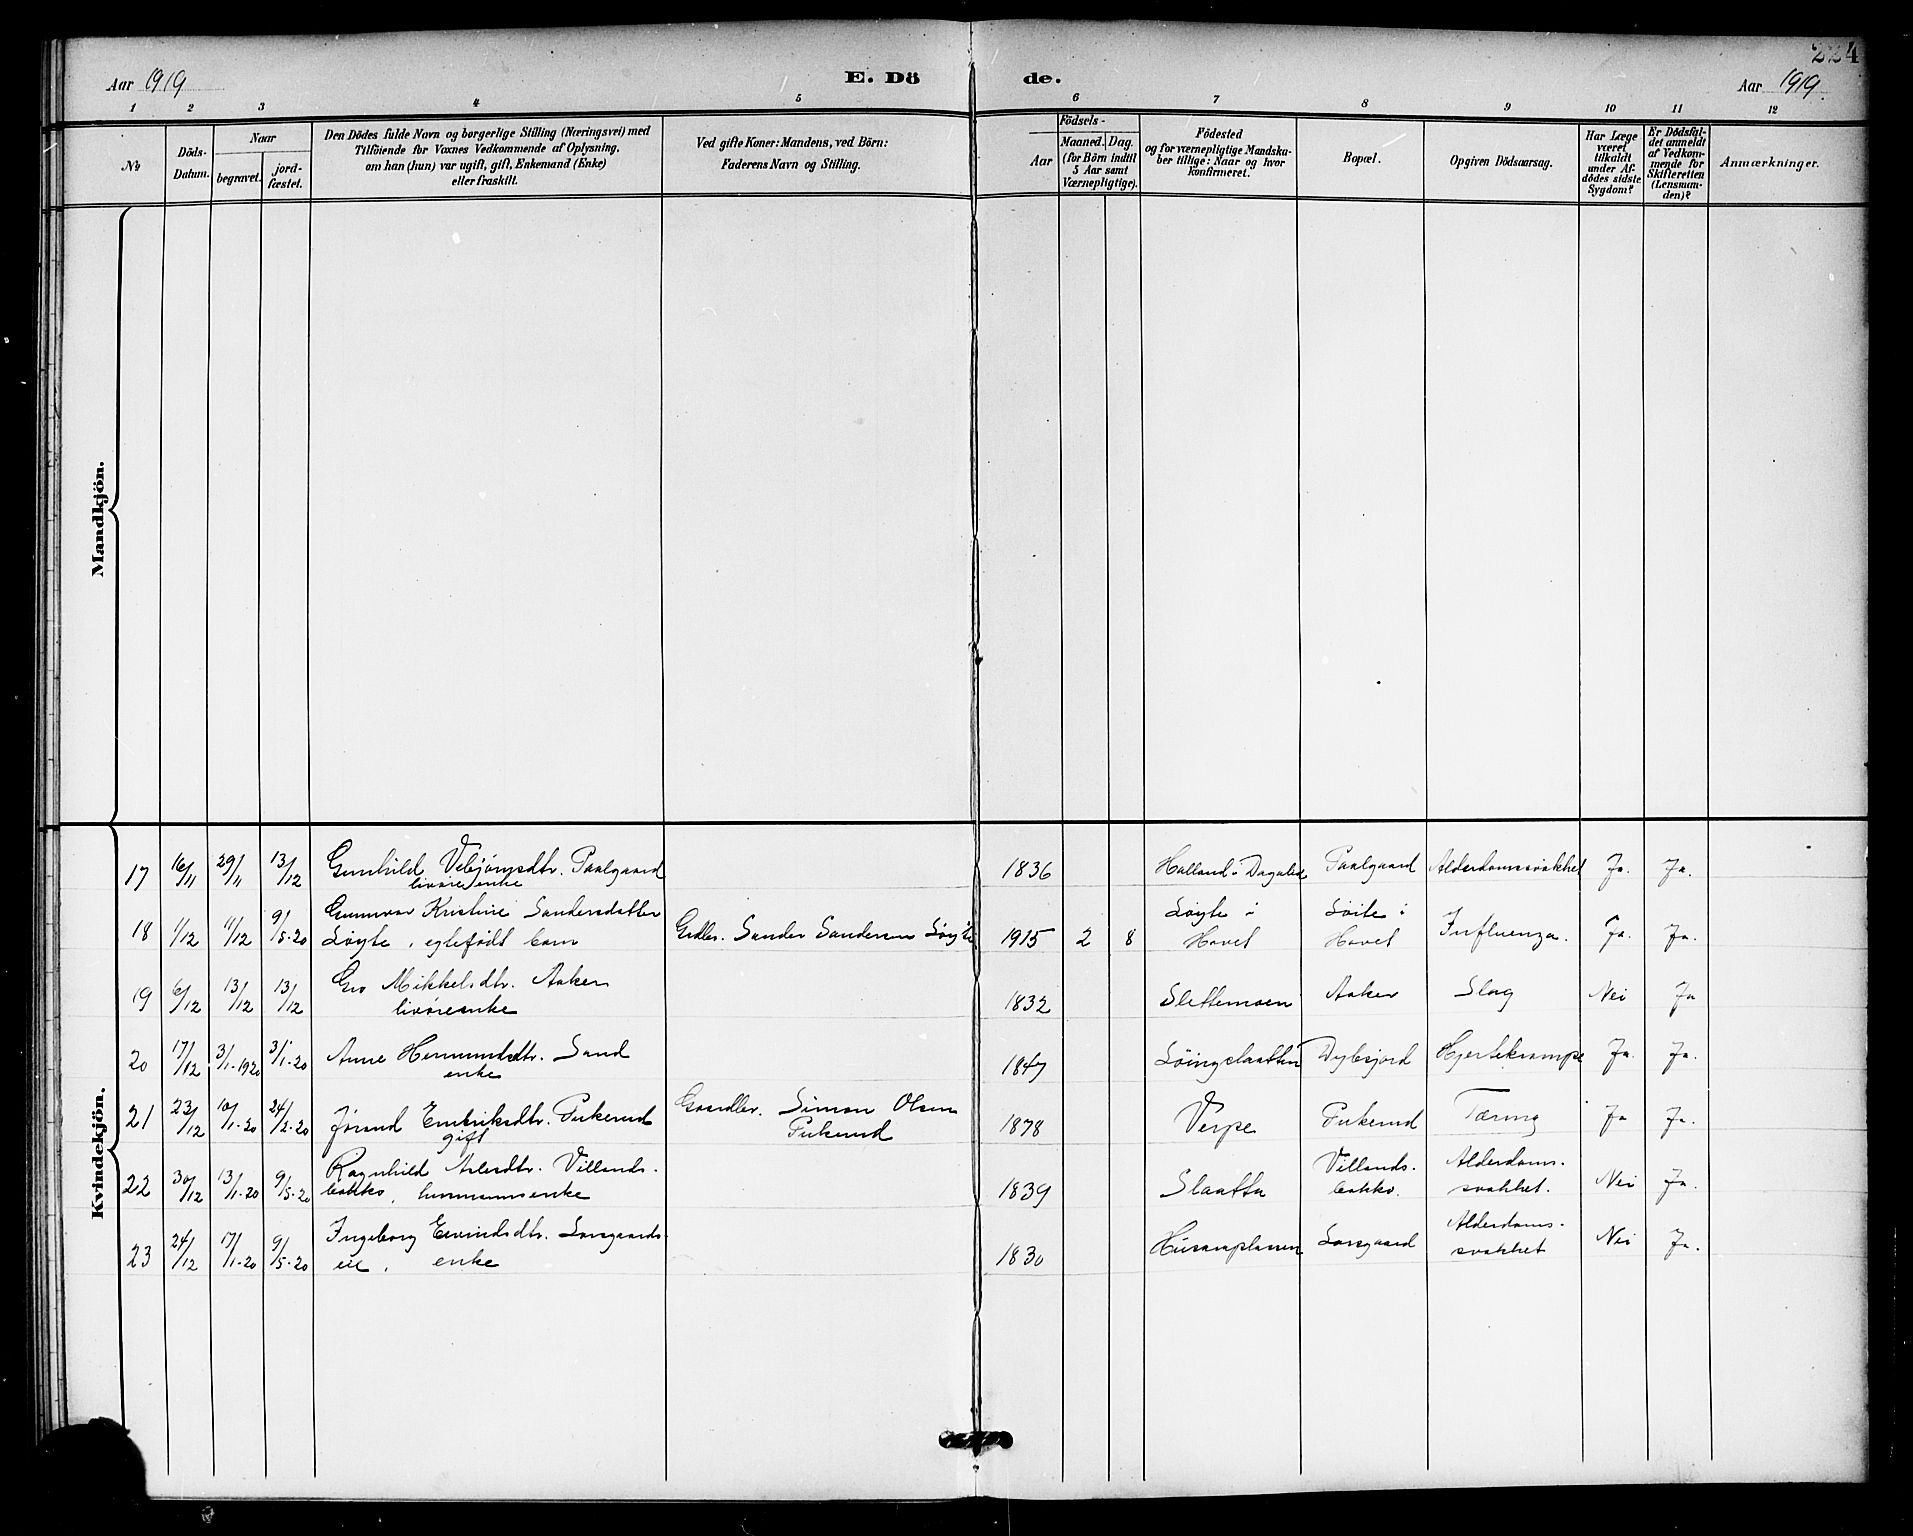 224
Aar 1919
E. Dö de.
Aar 1919.
1 2 3 4 5 6 7 8 9 10 11 12
No.
Döds-
Datum.
Naar
begravet.
jord-
fæstet.
Den Dödes fulde Navn og borgerlige Stilling (Næringsvei) med
Tilföiende for Voxnes Vedkommende af Oplysning,
om han (hun) var ugift, gift, Enkemand (Enke)
eller fraskilt.
Ved gifte Koner: Mandens, ved Börn:
Faderens Navn og Stilling.
Födsels-
Aar
Maaned. Dag.
(for Börn indtil
5 Aar samt
Værnepligtige).
Födested
og for værnepligtige Mandska-
ber tillige: Naar og hvor
konfirmeret.
Bopæl.
Opgiven Dödsaarsag.
Har Læge
været
tilkaldt
under Af-
dödes sidste
Sygdom?
Er Dödsfal-
det anmeldt
af Vedkom-
mende for
Skifteretten
(Lensman-
den)?
Anmærkninger.
Mandkjön.
Kvindekjön.
17 16/11 29/11 13/12 Gunhild Vebjørnsdtr. Paalgaard 1836 Halland i Dagalid Paalgaard Alderdomssvakhet Ja. Ja.
livøreenke
18 1/12 11/12 9/5-20 Gunvor Kristine Sandersdatter
Løyte, egtefødt barn Grdbr. Sander Sandersen Løyte 1915 2 8 Løyte i
Hovet Løite i
Hovet Influenza. Ja. Ja.
19 6/12 13/12 13/12 Gro Mikkelsdtr. Aaker
livøreenke 1832 Slettemoen Aaker Slag Nei Ja
20 17/12 3/1-1920 3/1-20 Anne Hermundsdtr. Sand
enke 1847 Løingslaatten Dybsjord Hjertekrampe Ja. Ja.
21 23/12 10/1-20 24/2-20 Jørand Endriksdtr. Fukerud
gift Gaardbr. Simon Olsen
Fukerud 1878 Verpe Fukerud Tæring Ja Ja.
22 30/12 13/1-20 9/5-20 Ragnhild Asledtr. Villands-
bakko, husmannsenke 1839 Slaatta Villands-
bakko. Alderdoms-
svakhet. Nei Ja.
23 24/12 17/1-20 9/5-20 Ingeborg Eivindsdtr. Larsgaards-
eie, enke 1830 Husamplassen Larsgaard Alderdoms-
svakhet Nei Ja.